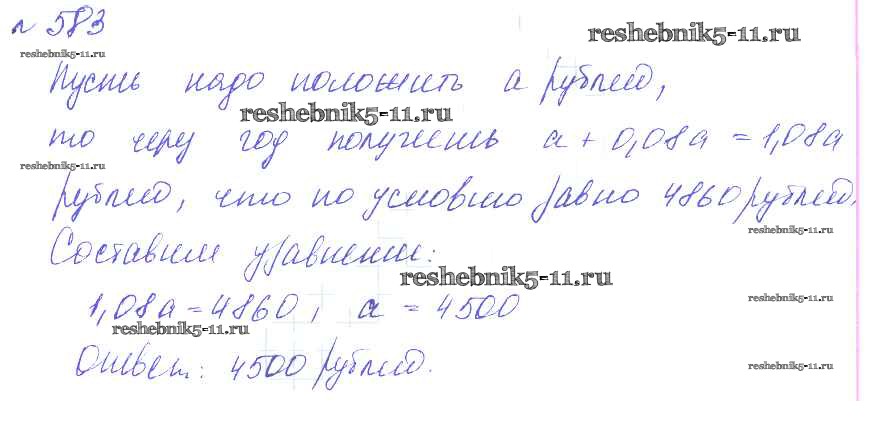 № 583
reshebnik5-11.ru
reshebnik5-11.ru
Пусть надо положить a рублей,
reshebnik5-11.ru
то через год получишь a + 0,08a = 1,08a
reshebnik5-11.ru
рублей, что по условию равно 4860 рублей.
reshebnik5-11.ru
Составим уравнение:
reshebnik5-11.ru
1,08a = 4860, a = 4500
reshebnik5-11.ru
reshebnik5-11.ru
Ответ: 4500 рублей.
reshebnik5-11.ru